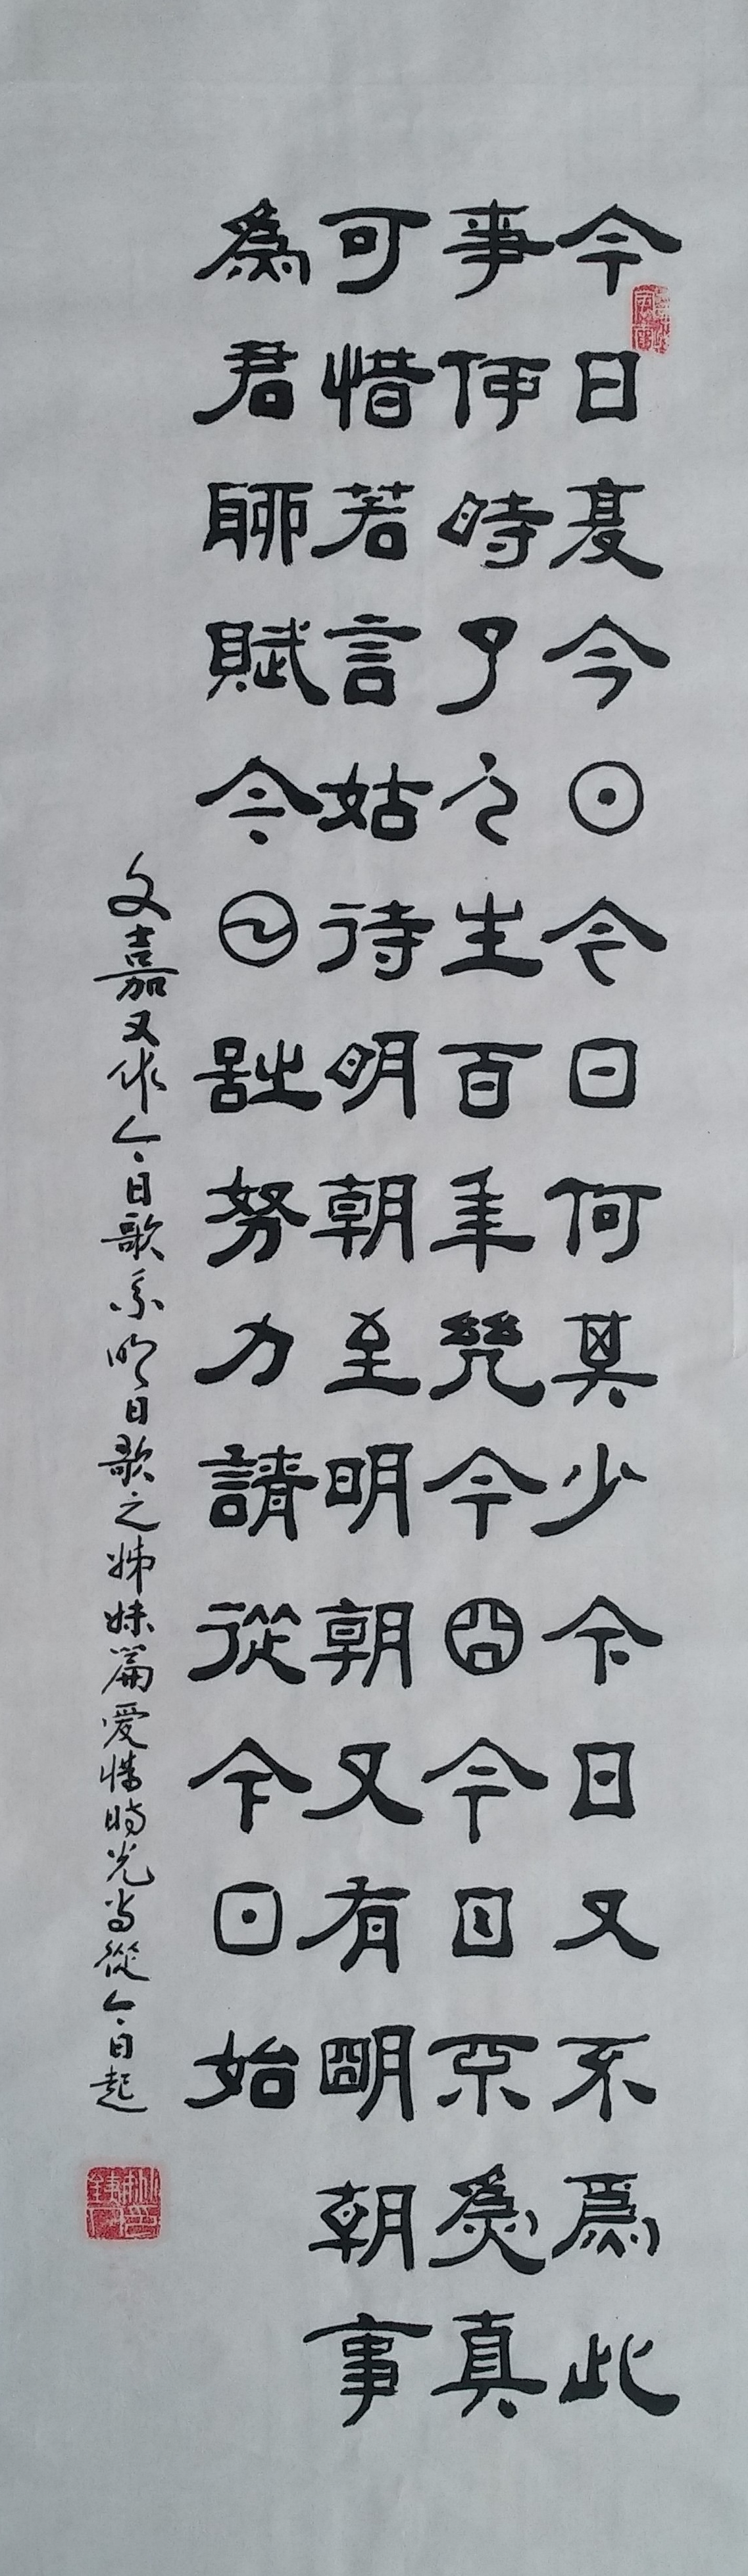 今日复今日今日何其少今日又不為此
事何時了人生百年幾今日今日不為真
可惜若言姑待明朝至明朝又有明朝事
為君聊賦今日詩努力請從今日始
文嘉又作今日歌系明日歌之姊妹篇愛惜時光当從今日起